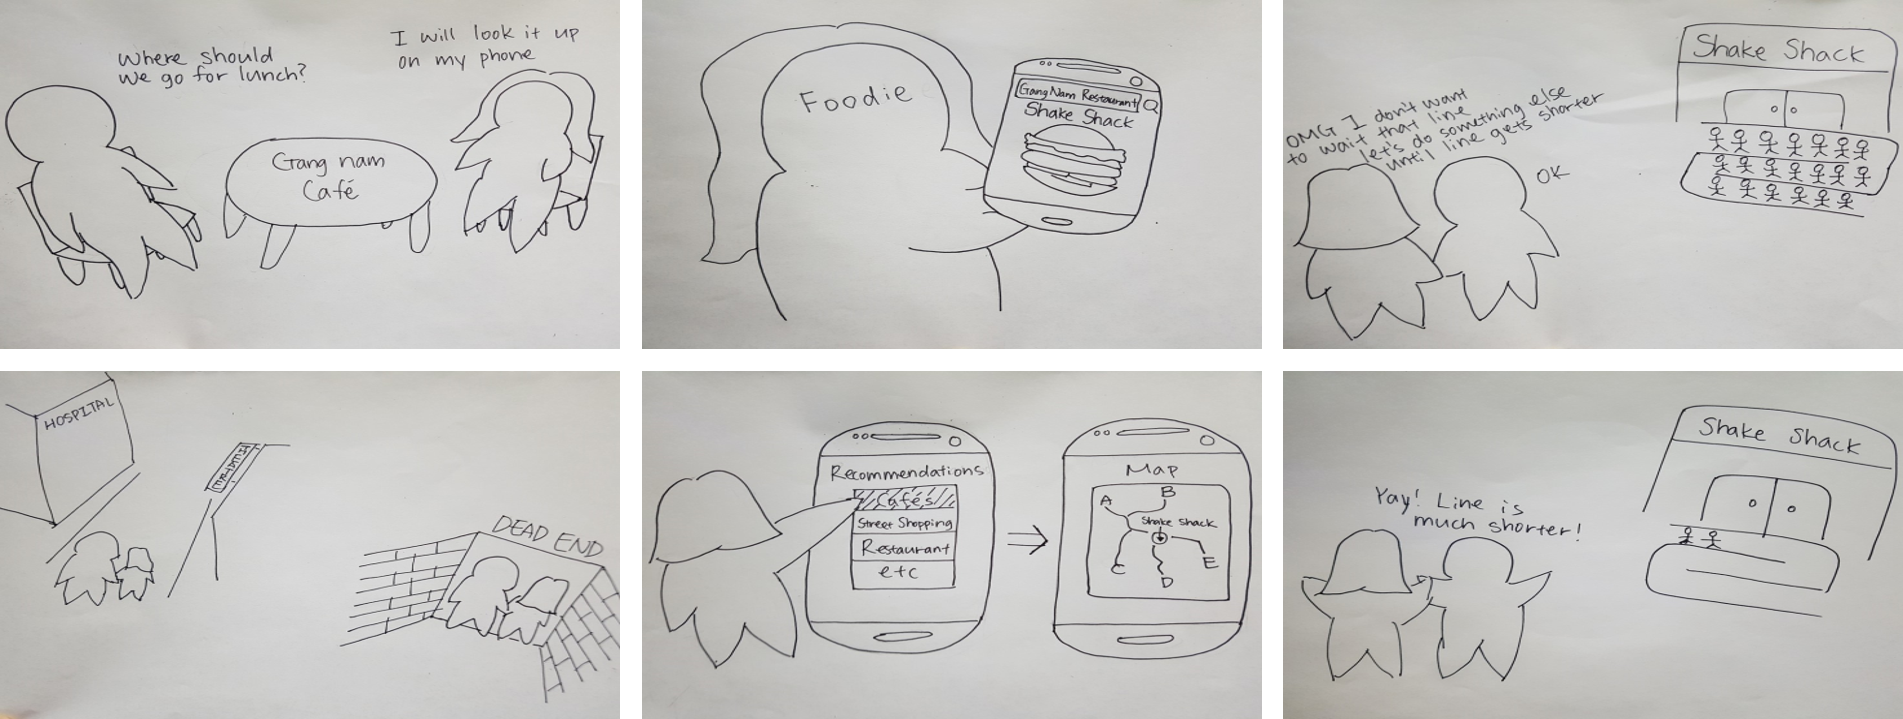 Where should
we go for lunch?
I will look it up
on my phone
Gang nam
Café
Foodie
GangNam Restaurant
Shake Shack
OMG I don't want
to wait that line
let's do something else
until line gets shorter
OK
Shake Shack
HOSPITAL
DEAD END
Recommendations
Cafés
Street Shopping
Restaurant
etc
Map
A
B
Shake Shack
C
D
E
Yay! Line is
much shorter!
Shake Shack